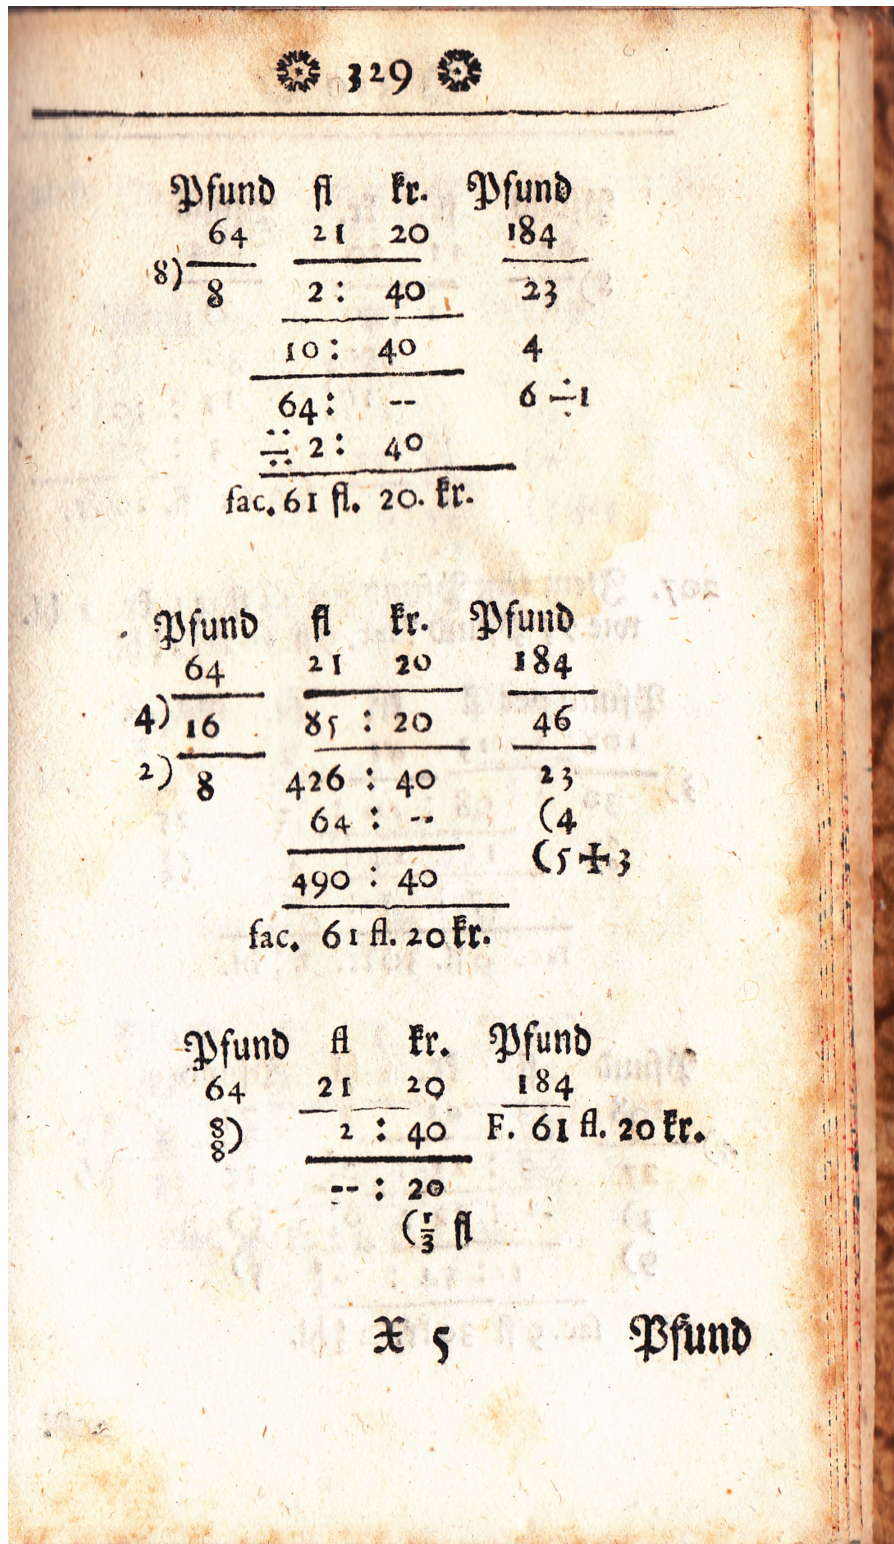 329
Pfund fl kr. Pfund
64 21 20 184
8) 8 2 : 40 23
10 : 40 4
64 : -- 6 ÷ 1
÷ 2 : 40
fac. 61 fl. 20. kr.
Pfund fl kr. Pfund
64 21 20 184
4) 16 85 : 20 46
2) 8 426 : 40 23
64 : -- (4
490 : 40 (5 + 3
fac. 61 fl. 20 kr.
Pfund fl kr. Pfund
64 21 20 184
8
8) 2 : 40 F. 61 fl. 20 kr.
-- : 20
(1/3 fl
X 5 Pfund